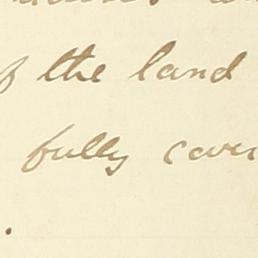 of the land
fully cover
.